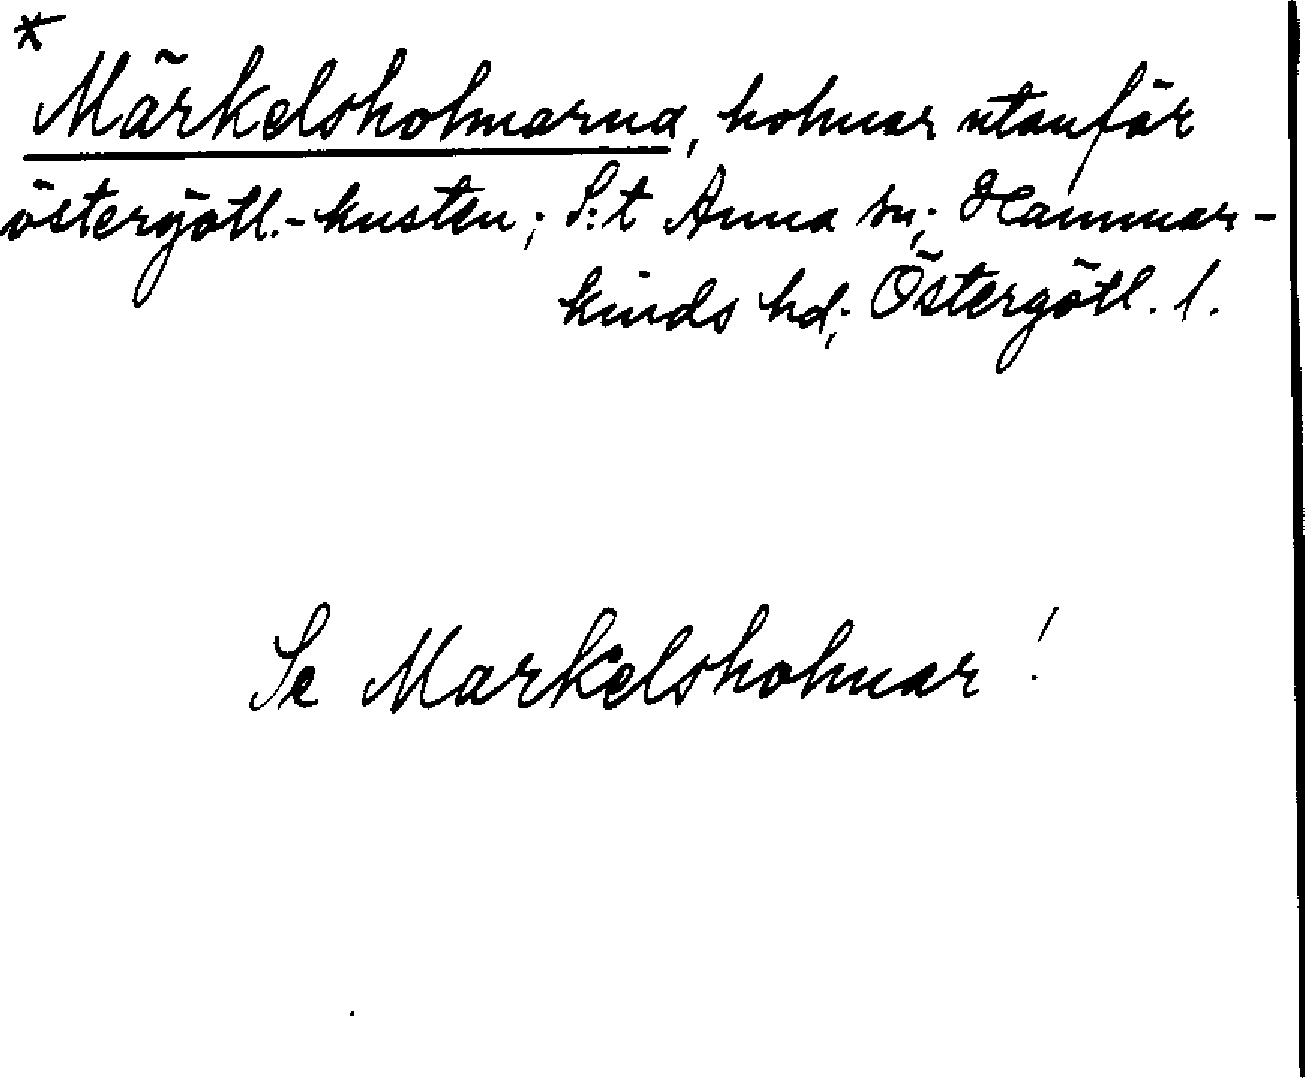 * Märkelsholmarna, holmar utanför
östergötl.-kusten; S:t Anna sn; Hammar-
kinds hd; Östergötl. l.
Se Markelsholmar!